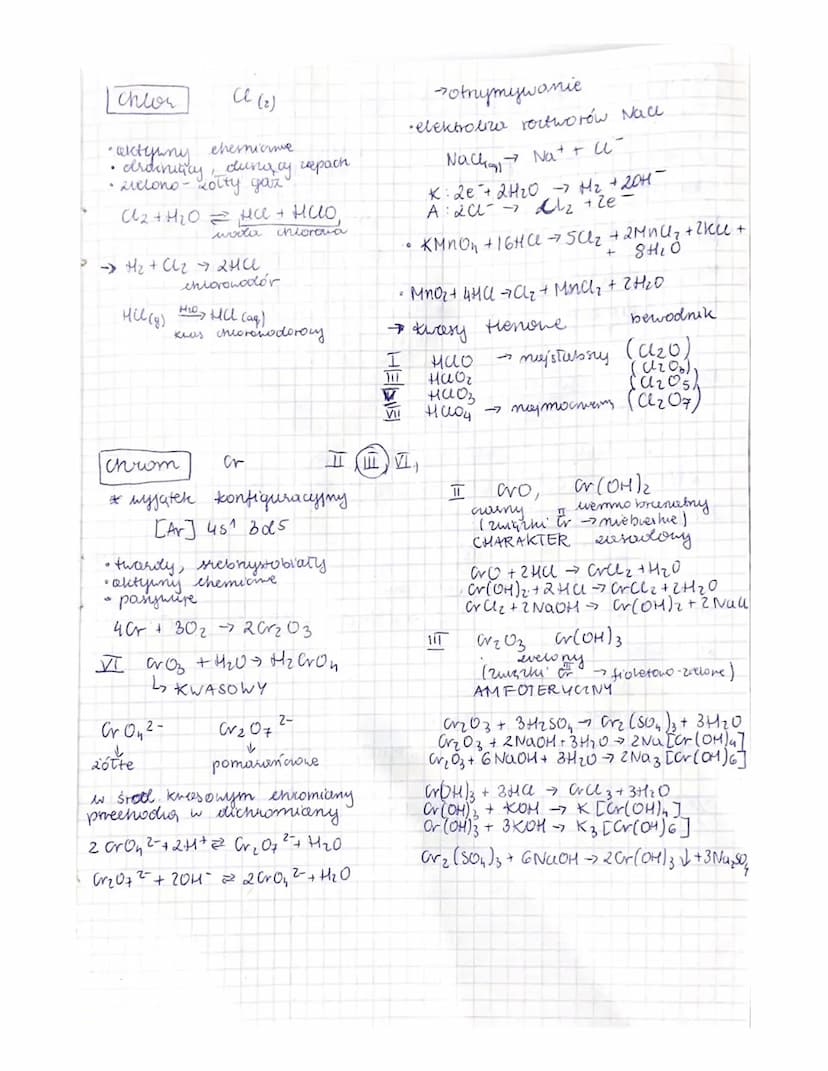 Chlor Cl(2)
• aktywny chemicznie
• drażniący, duszący zapach
• zielono-żółty gaz
Cl2 + H2O ⇌ HCl + HClO
woda chlorowa
→ H2 + Cl2 → 2HCl
chlorowodór
HCl(g) H2O→ HCl(aq)
kwas chlorowodorowy
→ otrzymywanie
• elektroliza roztworów NaCl
NaCl(aq) → Na+ + Cl-
K: 2e- + 2H2O → H2 + 2OH-
A: 2Cl- → Cl2 + 2e-
• KMnO4 + 16HCl → 5Cl2 + 2MnCl2 + 2KCl +
+ 8H2O
• MnO2 + 4HCl → Cl2 + MnCl2 + 2H2O
→ kwasy tlenowe bezwodnik
I HClO → najsłabszy (Cl2O)
III HClO2
V HClO3 (Cl2O5)
VII HClO4 → najmocniejszy (Cl2O7)
Chrom Cr II, III, VI,
* wyjątek konfiguracyjny
[Ar] 4s1 3d5
• twardy, srebrzystobiały
• aktywny chemicznie
• pasywuje
4Cr + 3O2 → 2Cr2O3
VI CrO3 + H2O → H2CrO4
↳ KWASOWY
CrO4 2- Cr2O7 2-
↓ ↓
żółte pomarańczowe
w środ. kwasowym chromiany
przechodzą w dichromiany
2CrO4 2- + 2H+ ⇌ Cr2O7 2- + H2O
Cr2O7 2- + 2OH- ⇌ 2CrO4 2- + H2O
II CrO, Cr(OH)2
czarny ciemnobrunatny
(związki Cr II → niebieskie)
CHARAKTER zasadowy
CrO + 2HCl → CrCl2 + H2O
Cr(OH)2 + 2HCl → CrCl2 + 2H2O
CrCl2 + 2NaOH → Cr(OH)2 + 2NaCl
III Cr2O3 Cr(OH)3
zielony
(związki Cr III → fioletowo-zielone)
AMFOTERYCZNY
Cr2O3 + 3H2SO4 → Cr2(SO4)3 + 3H2O
Cr2O3 + 2NaOH + 3H2O → 2Na[Cr(OH)4]
Cr2O3 + 6NaOH + 3H2O → 2Na3[Cr(OH)6]
Cr(OH)3 + 3HCl → CrCl3 + 3H2O
Cr(OH)3 + KOH → K[Cr(OH)4]
Cr(OH)3 + 3KOH → K3[Cr(OH)6]
Cr2(SO4)3 + 6NaOH → 2Cr(OH)3↓ + 3Na2SO4